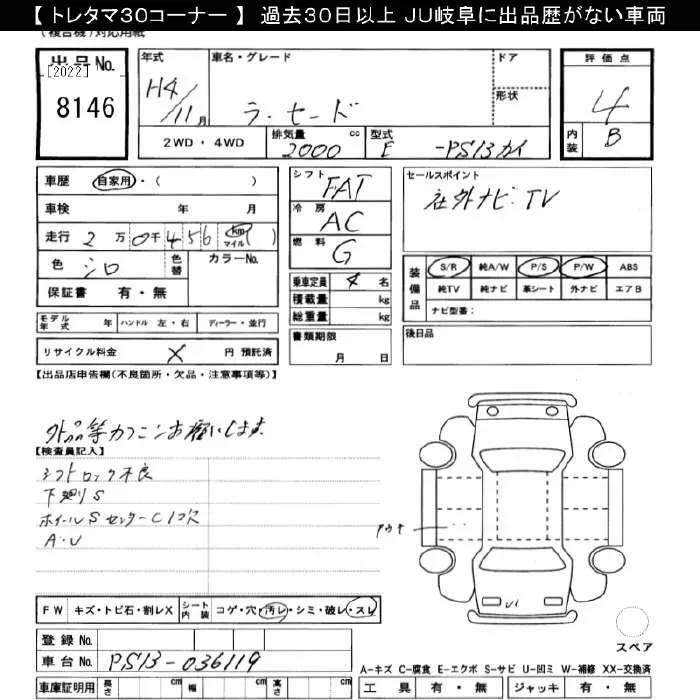 【 トレタマ30コーナー 】 過去30日以上 JU岐阜に出品歴がない車両
(複合機)対応用紙
出品No.
[2022]
8146
年式
H4/11月
車名・グレード
ラ・セード
ドア
形状
2WD・4WD
排気量 2000 cc
型式 E -PS13カイ
評価点
4
内装 B
車歴 自家用・( )
車検 年 月
走行 2万0千456 km マイル ( )
色 シロ 色替 カラーNo.
保証書 有・無
シフト FAT
冷房 AC
燃料 G
乗車定員 4名
積載量 kg
総重量 kg
セールスポイント
社外ナビ TV
装備品 S/R 純A/W P/S P/W ABS
純TV 純ナビ 革シート 外ナビ エアB
ナビ型番:
モデル年式 年 ハンドル 左・右 ディーラー・並行
書類期限
月 日
後日品
リサイクル料金 × 円 預託済
【出品店申告欄(不良箇所・欠品・注意事項等)】
外品等カクニンお願いします
【検査員記入】
シフトロック不良
下廻りS
ホイールS センターC1コ欠
A・U
U1
FW キズ・トビ石・割レX
シート内装 コゲ・穴・汚レ・シミ・破レ・スレ
スペア
登録No.
車台No. PS13-036119
A-キズ C-腐食 E-エクボ S-サビ U-凹ミ W-補修 XX-交換済
車庫証明用 長さ cm 幅 cm 高さ cm
工具 有・無 ジャッキ 有・無